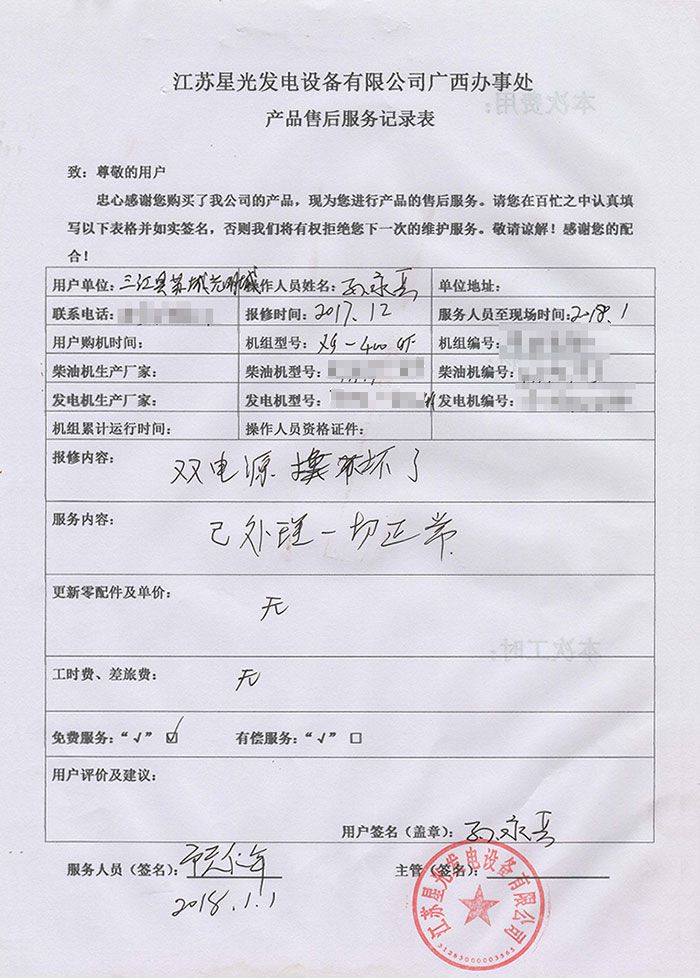 江苏星光发电设备有限公司广西办事处
产品售后服务记录表
本次费用：
致：尊敬的用户
忠心感谢您购买了我公司的产品，现为您进行产品的售后服务。请您在百忙之中认真填
写以下表格并如实签名，否则我们将有权拒绝您下一次的维护服务。敬请谅解！感谢您的配
合！
用户单位：三江县 城 城 操作人员姓名： 单位地址：
联系电话： 报修时间：2017.12 服务人员至现场时间：2018.1
用户购机时间： 机组型号： 机组编号：
柴油机生产厂家： 柴油机型号： 柴油机编号：
发电机生产厂家： 发电机型号： 发电机编号：
机组累计运行时间： 操作人员资格证件：
报修内容：
双电源 坏了
服务内容：
已处理一切正常
更新零配件及单价：
无
本次工时：
工时费、差旅费： 无
免费服务：“√” ☑ 有偿服务：“√” □
用户评价及建议：
用户签名（盖章）：
服务人员（签名）： 主管（签名）：
2018.1.1
江苏星光发电设备有限公司